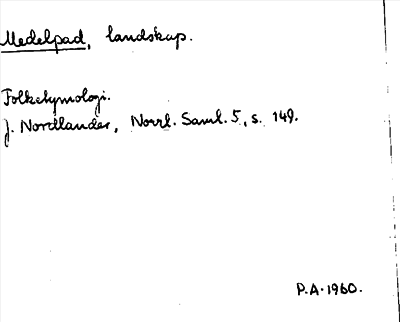 Medelpad, landskap.
Folketymologi.
J. Nordlander, Norrl. Saml. 5, s. 149.
P.A. 1960.